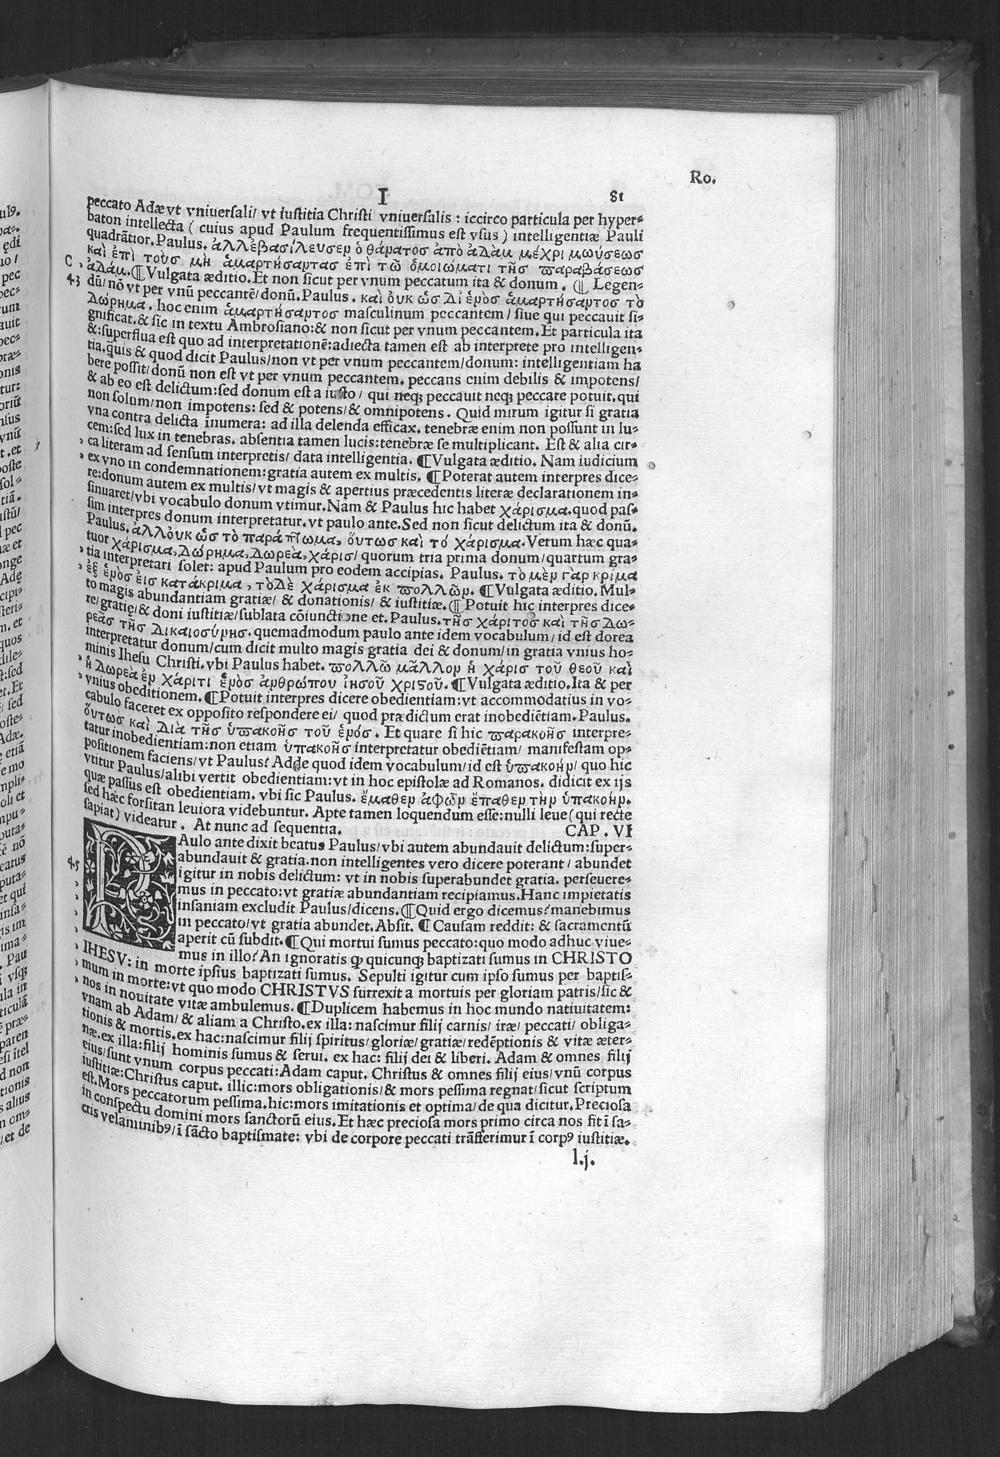 Ro.
I 81
peccato Adæ vt vniuersali/ vt iustitia Christi vniuersalis : iccirco particula per hyper-
baton intellecta ( cuius apud Paulum frequentissimus est vsus ) intelligentiæ Pauli
quadrātior. Paulus. ἀλλ' ἐβασίλευσεν ὁ θάνατοσ ἀπὸ ἀδὰμ μέχρι μωύσεωσ
καὶ ἐπὶ τοὺσ μὴ ἁμαρτήσαντασ ἐπὶ τῶ ὁμοιώματι τῆσ παραβάσεωσ
C , ἀδάμ. ¶ Vulgata æditio. Et non sicut per vnum peccatum ita & donum. ¶ Legen-
43 dū/ nō vt per vnū peccantē/ donū. Paulus. καὶ οὐκ ὡσ δι ἑνὸσ ἁμαρτήσαντοσ τὸ
δώρημα. hoc enim ἁμαρτήσαντοσ masculinum peccantem/ siue qui peccauit si-
gnificat. & sic in textu Ambrosiano: & non sicut per vnum peccantem. Et particula ita
&: superflua est quo ad interpretationē: adiecta tamen est ab interprete pro intelligen-
tia. quis & quod dicit Paulus/ non vt per vnum peccantem/ donum: intelligentiam ha
bere possit/ donū non est vt per vnum peccantem. peccans enim debilis & impotens/
& ab eo est delictum: sed donum est a iusto/ qui neq; peccauit neq; peccare potuit. qui
non solum/ non impotens: sed & potens/ & omnipotens. Quid mirum igitur si gratia
vna contra delicta inumera: ad illa delenda efficax. tenebræ enim non possunt in lu-
cem: sed lux in tenebras. absentia tamen lucis: tenebræ se multiplicant. Est & alia cir-
, ca literam ad sensum interpretis/ data intelligentia. ¶ Vulgata æditio. Nam iudicium
, ex vno in condemnationem: gratia autem ex multis. ¶ Poterat autem interpres dice-
re: donum autem ex multis/ vt magis & apertius præcedentis literæ declarationem in-
sinuaret/ vbi vocabulo donum vtimur. Nam & Paulus hic habet χάρισμα. quod pas-
sim interpres donum interpretatur. vt paulo ante. Sed non sicut delictum ita & donū.
Paulus. ἀλλ' οὐκ ὡσ τὸ παράπτωμα, ὅυτωσ καὶ τό χάρισμα. Verum hæc qua-
tuor χάρισμα, δώρημα, δωρεὰ, χάρισ/ quorum tria prima donum/ quartum gra-
, tia interpretari solet: apud Paulum pro eodem accipias. Paulus. τὸ μὲν γὰρ κρίμα
, ἐξ ἑνὸσ ἐισ κατάκριμα, τὸ δὲ χάρισμα ἐκ πολλῶν. ¶ Vulgata æditio. Mul-
to magis abundantiam gratiæ/ & donationis/ & iustitiæ. ¶ Potuit hic interpres dice-
re/ gratie/ & doni iustitiæ/ sublata cōiunctione et. Paulus. τῆσ χάριτοσ καὶ τῆσ δω-
ρεᾶσ τῆσ δικαιοσύνησ. quemadmodum paulo ante idem vocabulum/ id est dorea
interpretatur donum/ cum dicit multo magis gratia dei & donum/ in gratia vnius ho-
minis Ihesu Christi. vbi Paulus habet. πολλῶ μᾶλλον ἡ χάρισ τοῦ θεοῦ καὶ
, ἡ δωρεὰ ἐν χάριτι ἑνὸσ ἀνθρώπου ἰησοῦ χριστοῦ. ¶ Vulgata æditio. Ita & per
, vnius obeditionem. ¶ Potuit interpres dicere obedientiam: vt accommodatius in vo-
cabulo faceret ex opposito respondere ei/ quod prædictum erat inobediētiam. Paulus.
ὅυτωσ καὶ διὰ τῆσ ὑπακοῆσ τοῦ ἑνόσ. Et quare si hic παρακοῆσ interpre-
tatur inobedientiam: non etiam ὑπακοῆσ interpretatur obediētiam/ manifestam op-
positionem faciens/ vt Paulus? Adde quod idem vocabulum/ id est ὑπακοὴν/ quo hic
vtitur Paulus/ alibi vertit obedientiam: vt in hoc epistolæ ad Romanos. didicit ex ijs
quæ passus est obedientiam. vbi sic Paulus. ἔμαθεν ἀφ ὧν ἔπαθεν τὴν ὑπακοὴν.
sed hæc forsitan leuiora videbuntur. Apte tamen loquendum esse: nulli leue ( qui recte
sapiat ) videatur. At nunc ad sequentia. CAP. VI
PAulo ante dixit beatus Paulus/ vbi autem abundauit delictum: super-
45 abundauit & gratia. non intelligentes vero dicere poterant/ abundet
igitur in nobis delictum: vt in nobis superabundet gratia. perseuere-
mus in peccato: vt gratiæ abundantiam recipiamus. Hanc impietatis
, insaniam excludit Paulus/ dicens. ¶ Quid ergo dicemus? manebimus
, in peccato/ vt gratia abundet. Absit. ¶ Causam reddit: & sacramentū
, aperit cū subdit. ¶ Qui mortui sumus peccato: quo modo adhuc viue-
mus in illo? An ignoratis ꝙ quicunq; baptizati sumus in CHRISTO
, IHESV: in morte ipsius baptizati sumus. Sepulti igitur cum ipso sumus per baptis-
, mum in morte: vt quo modo CHRISTVS surrexit a mortuis per gloriam patris/ sic &
, nos in nouitate vitæ ambulemus. ¶ Duplicem habemus in hoc mundo natiuitatem:
vnam ab Adam/ & aliam a Christo. ex illa: nascimur filij carnis/ iræ/ peccati/ obliga-
tionis & mortis. ex hac: nascimur filij spiritus/ gloriæ/ gratiæ/ redēptionis & vitæ æter-
næ. ex illa: filij hominis sumus & serui. ex hac: filij dei & liberi. Adam & omnes filij
eius/ sunt vnum corpus peccati: Adam caput. Christus & omnes filij eius/ vnū corpus
iustitiæ: Christus caput. illic: mors obligationis/ & mors pessima regnat/ sicut scriptum
est. Mors peccatorum pessima. hic: mors imitationis et optima/ de qua dicitur. Preciosa
in conspectu domini mors sanctorū eius. Et hæc preciosa mors primo circa nos fit ī sa-
cris velaminibꝰ/ ī sācto baptismate: vbi de corpore peccati trāsferimur ī corpꝰ iustitiæ.
l.j.